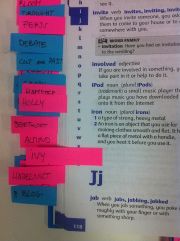 BLOOM
THROUGHT
PEAS
DEBATE
CUT and PASTE
HAMSTER
HOLLY
BEETROOT
ALBINO
IVY
HAZELNUT
BLOG
invite verb invites, inviting, invited
When you invite someone, you ask
them to come to your house or to go
somewhere with you.
WORD FAMILY
• invitation Have you had an invitation
to the wedding?
involved adjective
If you are involved in something, you
take part in it or help to do it.
iPod noun (plural iPods)
(trademark) a small music player that
plays music you have downloaded
onto it from the Internet
iron noun (plural irons)
1 a type of strong, heavy metal
2 An iron is an object that you use for
making clothes smooth and flat. It has
a flat piece of metal with a handle,
and you heat it before you use it.
Jj
jab verb jabs, jabbing, jabbed
When you jab something, you poke it
roughly with your finger or with
something sharp.
118